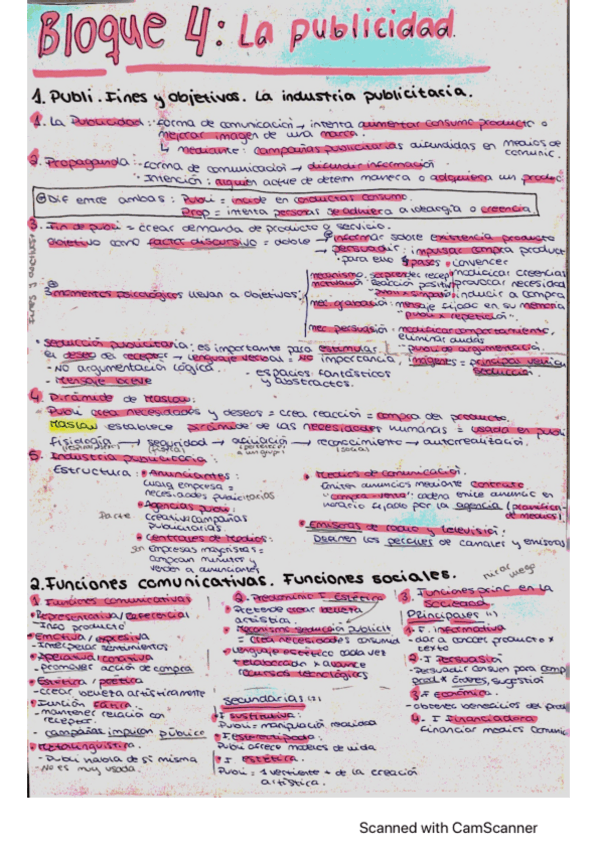 Bloque 4: La publicidad.
1. Publi. Fines y objetivos. La industria publicitaria.
1. La Publicidad: forma de comunicación → intenta aumentar consumo producto o
mejorar imagen de una marca.
↳ mediante: campañas publicitarias difundidas en medios de
comunic.
2. Propaganda: forma de comunicación → difundir información
Intención: alguien actúe de determ manera o adquiera un produc
Dif entre ambas: Publi = incide en conductas consumo.
Prop = intenta personas se adhiera a ideología o creencia
3. Fin de publi = crear demanda de producto o servicio.
Objetivo como factor discursivo = doble → informar sobre existencia producto
persuadir: impulsar compra product
para ello pasos convencer
modificar creencias
provocar necesidad
inducir a compra
3 momentos psicológicos llevan a objetivos:
mecanismo sorprender recep
reacción positiv
mec grabación: mensaje fijado en su memoria
publi x repetición.
mec persuasión: modificar comportamiento,
eliminar dudas
publi de argumentación.
Fines y objetivos
Seducción publicitaria: es importante para estimular
el deseo del receptor → lenguaje verbal = NO importancia, imágenes = principal
seducción
- NO argumentación lógica.
- Mensaje breve
- espacios fantásticos
y abstractos.
4. Pirámide de Maslow.
Publi crea necesidades y deseos = crea reacción = compra del producto.
Maslow establece pirámide de las necesidades humanas = usado en publi
fisiología → seguridad → afiliación → reconocimiento → autorrealización.
(física) (social)
5. Industria publicitaria
Estructura: Anunciantes:
cada empresa =
necesidades publicitarias
Agencias publi:
creativi campañas
publicitarias
Centrales de medios:
son Empresas mayoristas =
compran minutos y
venden a anunciantes
Parte
Medios de comunicación.
Emiten anuncios mediante contrato
"compra-venta": cadena emite anuncio en
horario fijado por la agencia (planificación
de medios)
Emisoras de radio y televisión:
Definen los perfiles de canales y emisoras
2. Funciones comunicativas. Funciones sociales.
mirar luego
1. Funciones comunicativas
Representativa/referencial
- Info producto
Emotiva/expresiva
- Interpelar sentimientos
Apelativa/conativa
- Promover acción de compra
Estética/poética
- crear belleza artísticamente
Función fática:
- mantener relación con
receptor.
- campañas impulson público
Metalingüística.
- Publi habla de sí misma
- NO es muy usada.
2. Predominio F estética
Pretende crear belleza
artística.
Mecanismo seducción publicit
= crea necesidades consumid
Lenguaje estético cada vez
+ elaborado x avance
recursos tecnológicos
Secundarias
F sustitutiva:
Publi = manipulación realidad
F estereotipada:
Publi ofrece modelos de vida
F estética.
Publi = 1 vertiente + de la creación
artística.
3. Funciones princ en la
sociedad
Principales
1. F. informativa
- dar a conocer producto x
texto
2. F Persuasión
- Persuadir consum para comp
prod x órdenes, sugestión
3. F económica.
- obtener beneficios del prod
4. F Financiadora
Financiar medios comunic
Scanned with CamScanner